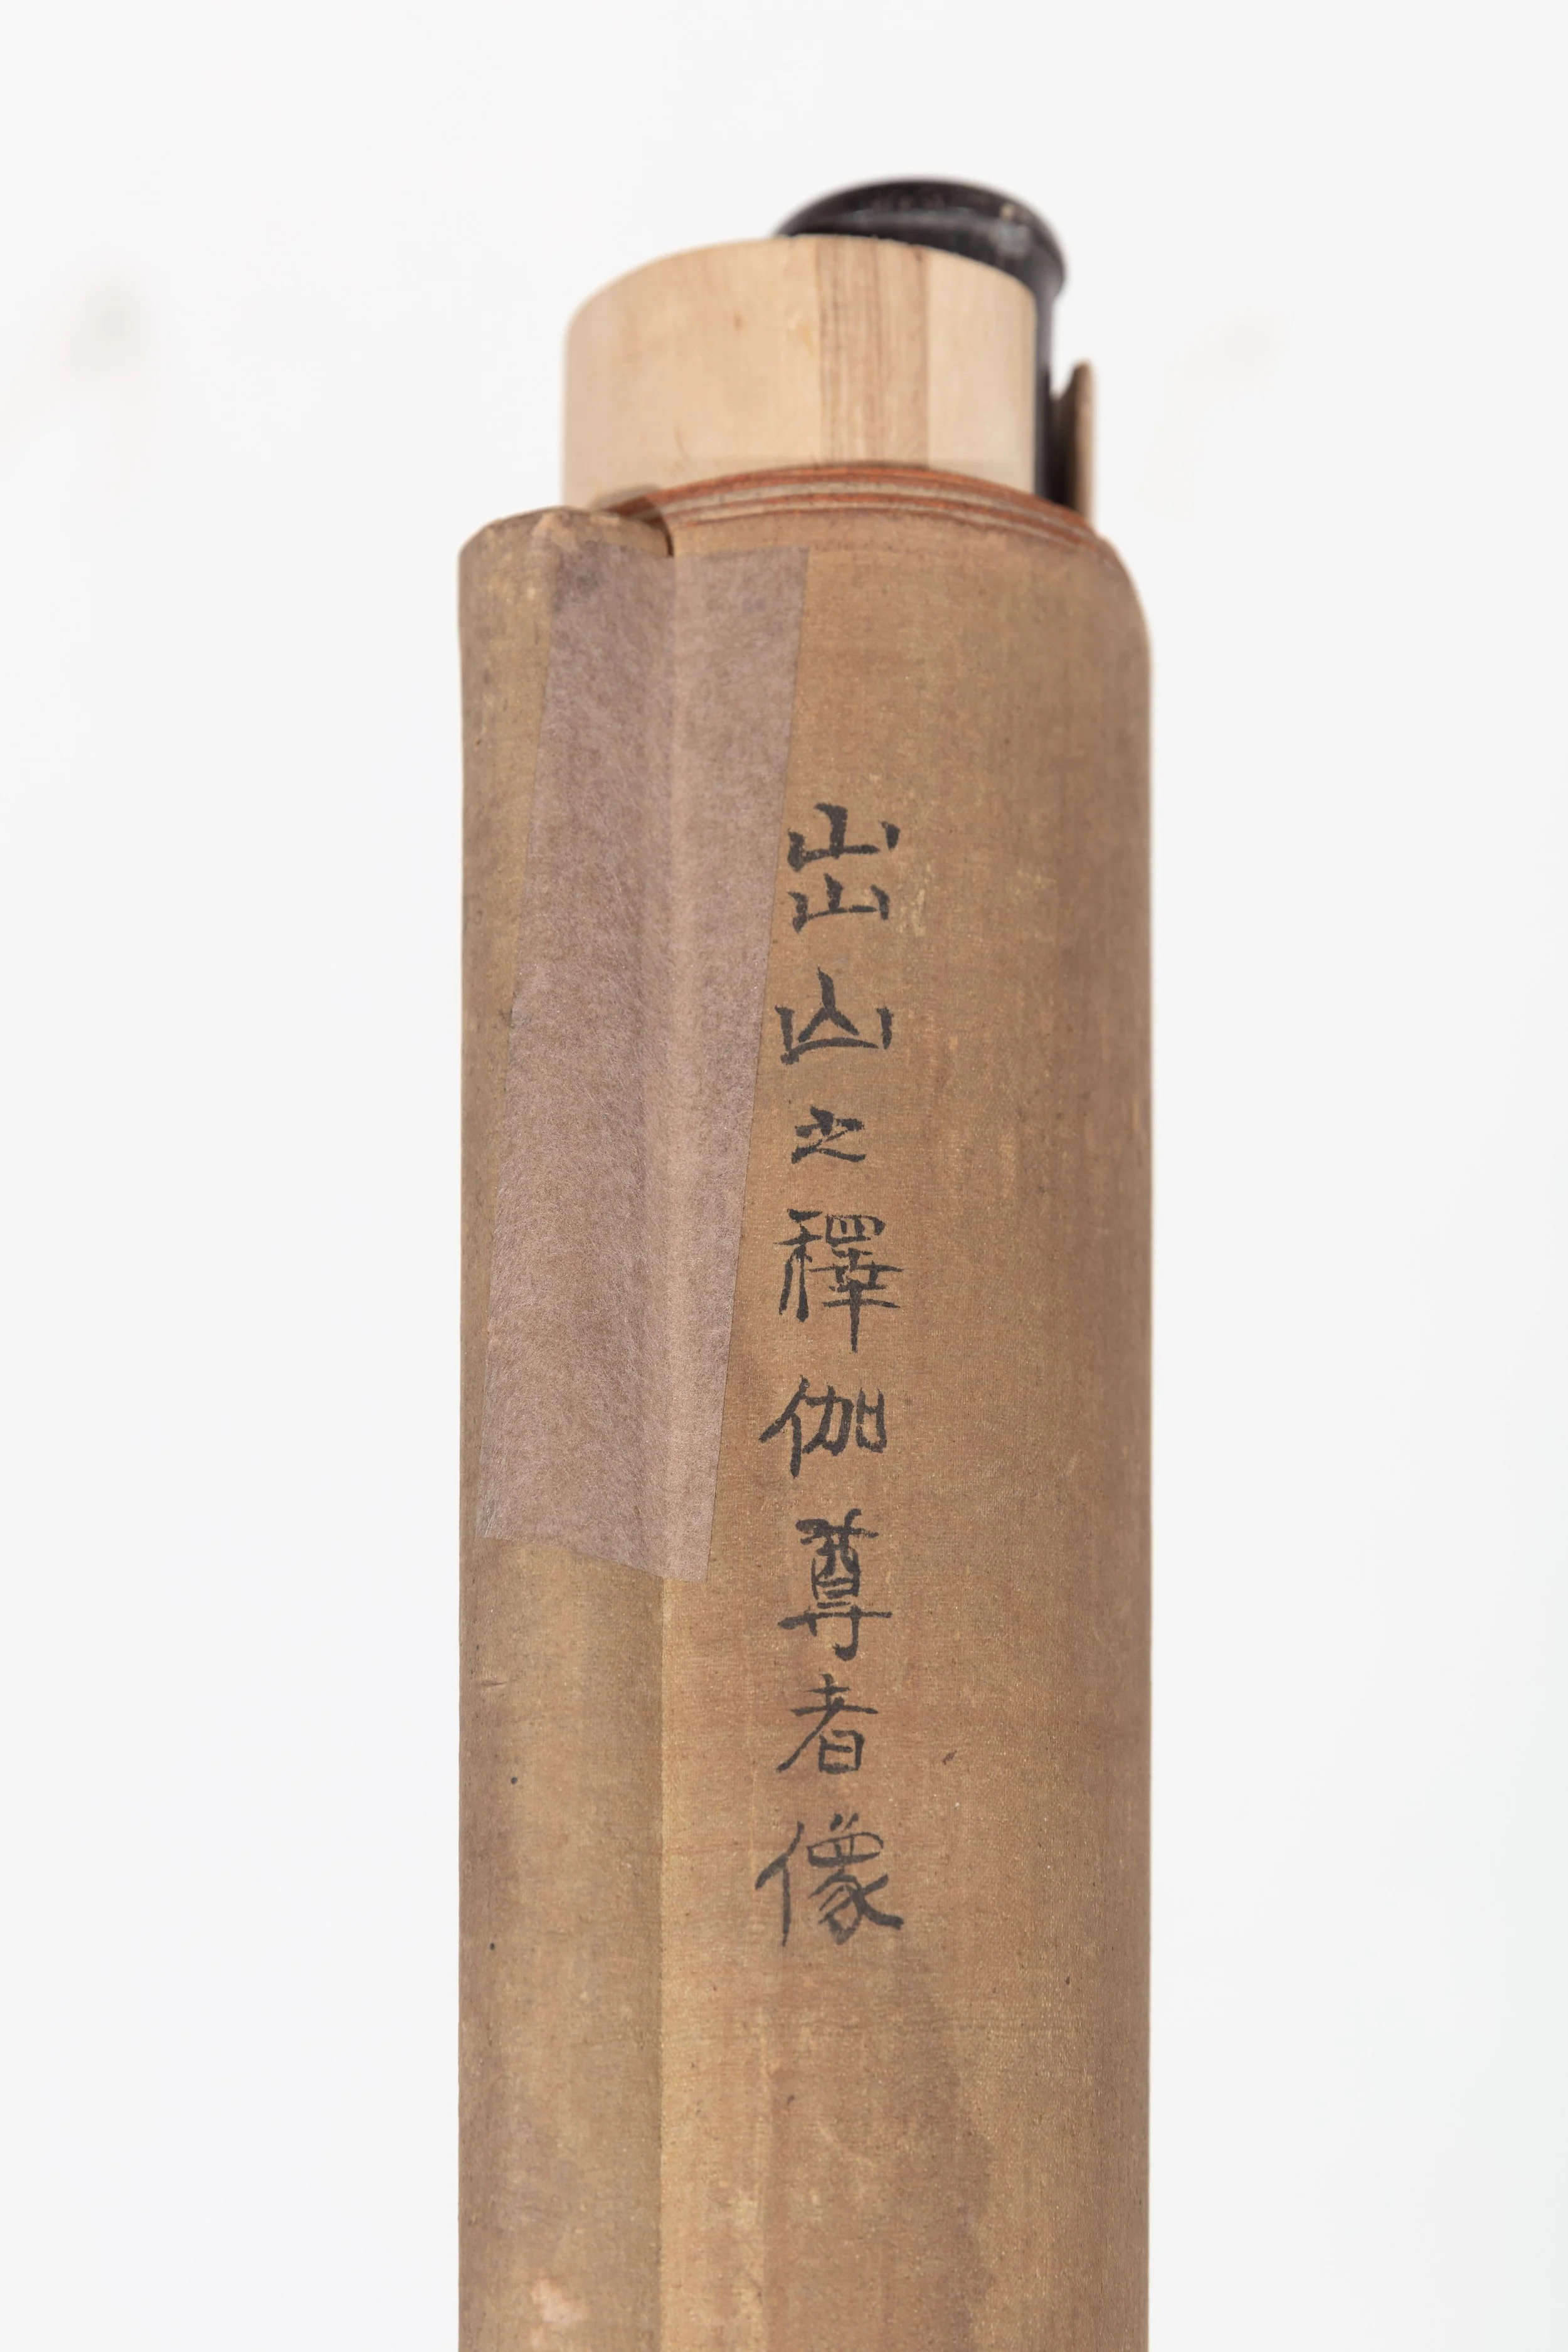 出山之釋伽尊者像